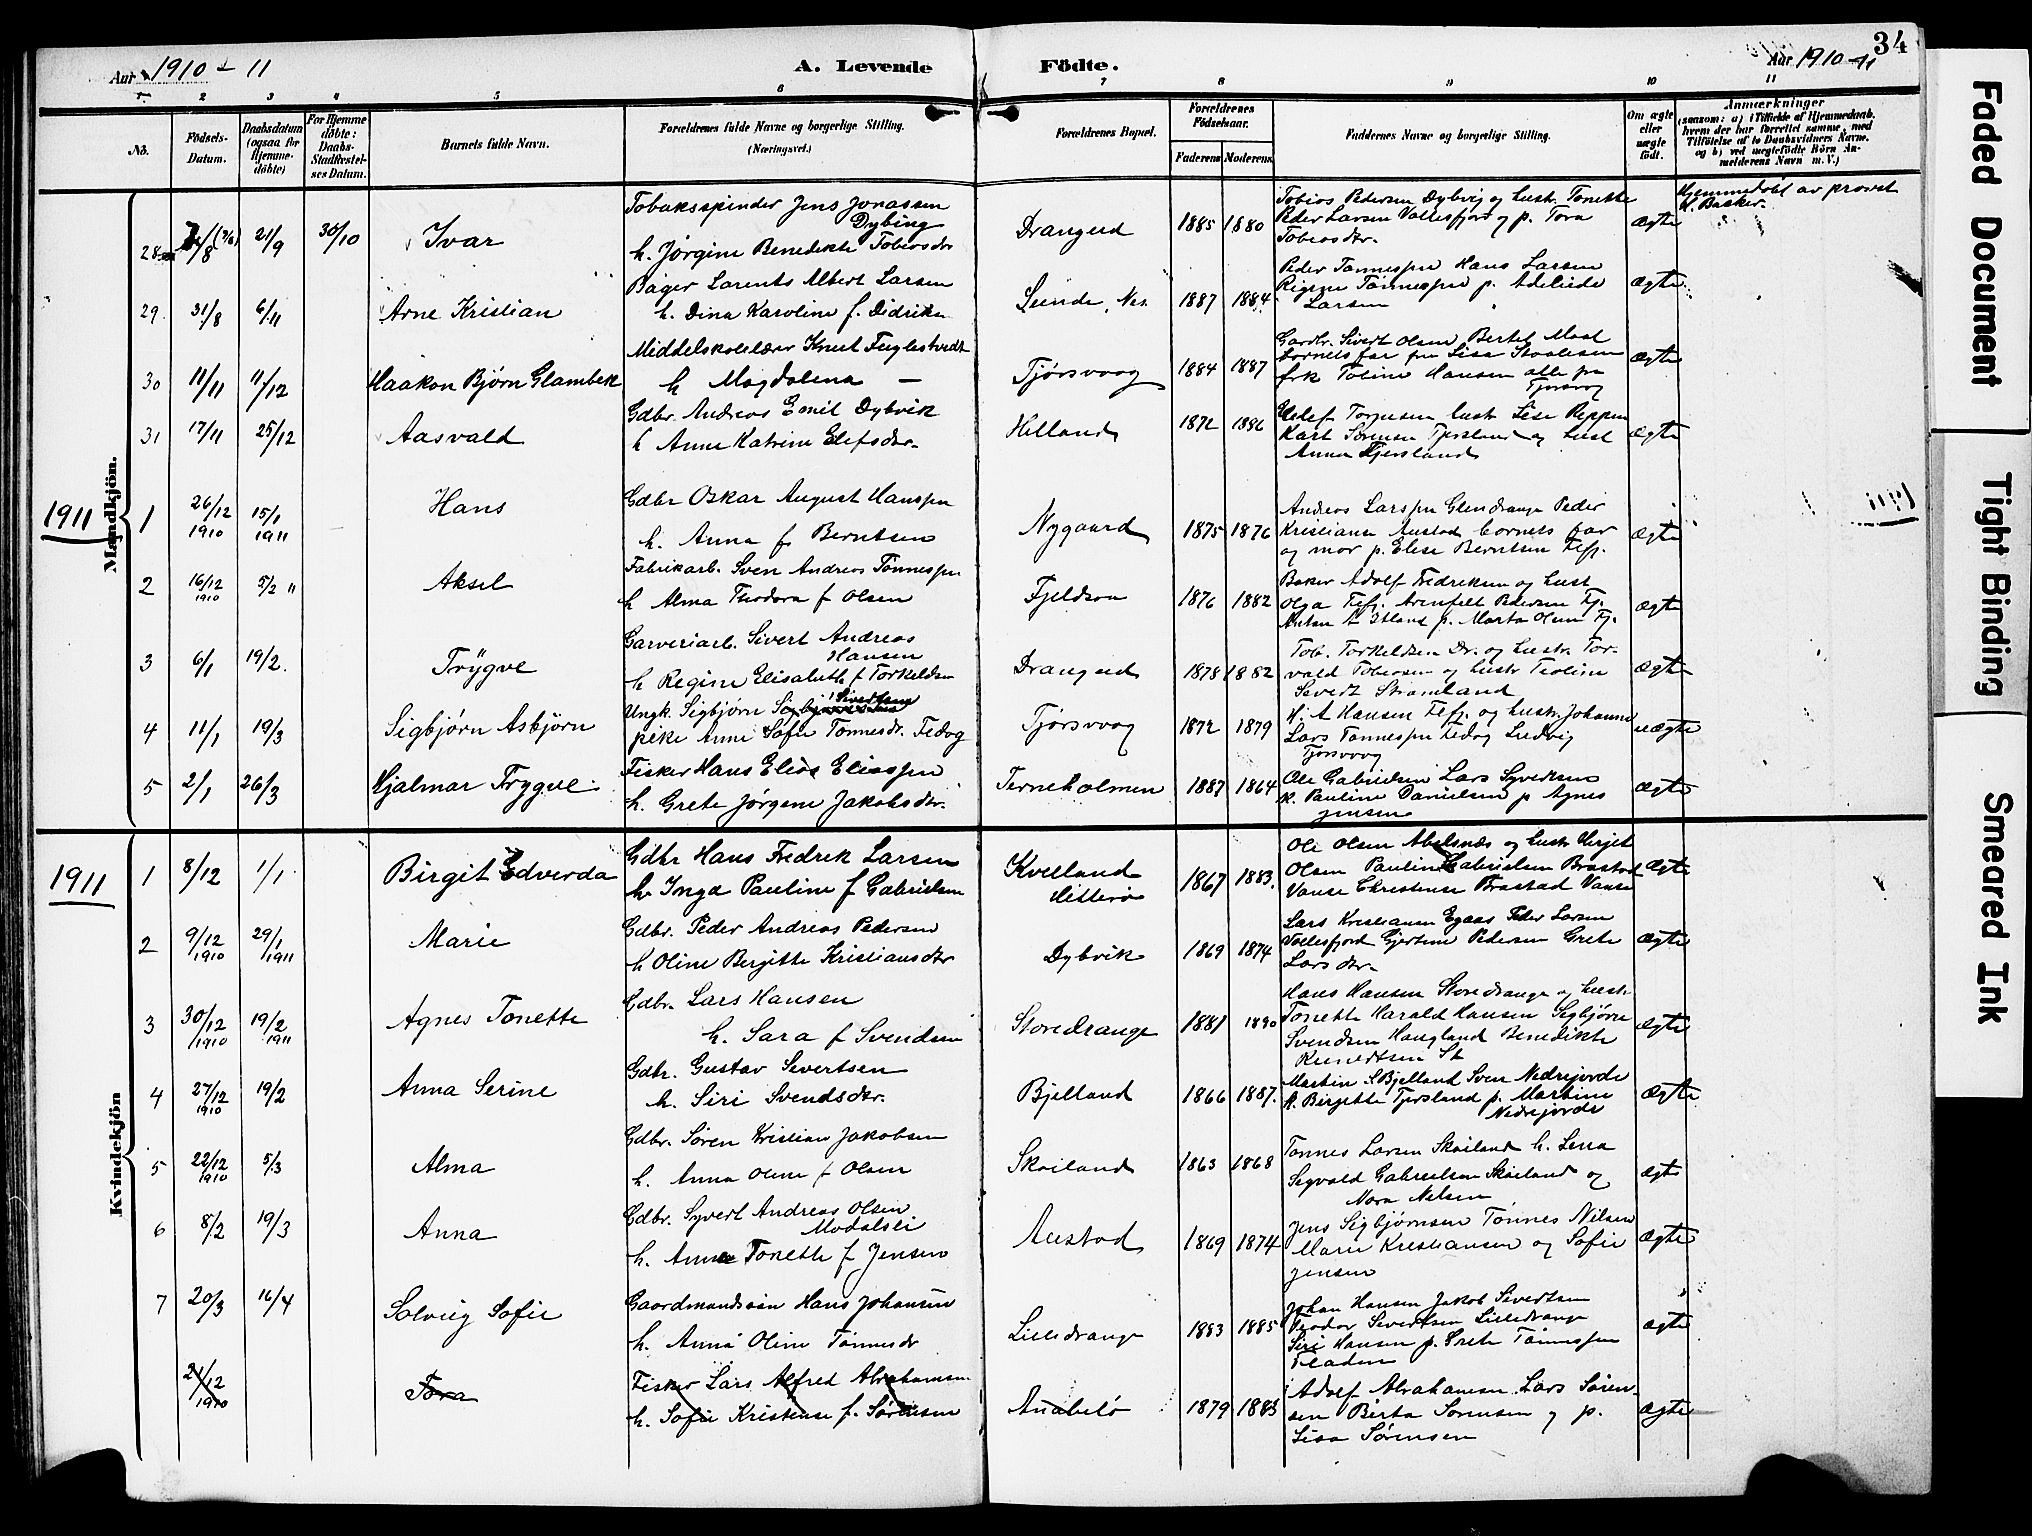 Aar 1910-11
A. Levende Födte.
Aar 1910-11
34
1. 2 3 4 5 6 7 8 9 10 11
No.
Födsels-
Datum.
Daabsdatum
(ogsaa for
Hjemme-
döbte)
For Hjemme
döbte:
Daabs-
Stadfæstel-
ses Datum.
Barnets fulde Navn.
Forældrenes fulde Navne og borgerlige Stilling.
(Næringsvei.)
Forældrenes Bopæl.
Forældrenes
Födselsaar.
Faderens Moderens
Faddernes Navne og borgerlige Stilling.
Om ægte
eller
uægte
födt.
Anmærkninger
(saasom: a) i Tilfælde af Hjemmedaab,
hvem der har forrettet samme, med
Tilföielse af to Daabsvidners Navne,
og b) ved uægtefödte Börn An-
melderens Navn m. V.)
Mandkjön.
28 21/9 30/10 Ivar
Tobaksspinder Jens Jonassen
Dybing
h. Jørgine Benedikte Tobiasdtr
Drangeid 1885 1880
Tobias Pedersen Dybvig og hustr. Tonette
Peder Larsen Vollesfjord og p. Tora
Tobiasdtr.
ægte
Hjemmedøbt av provst
29. 31/8 6/11 Arne Kristian
Bager Larents Albert Larsen
h. Dina Karoline f. Didriksn
Sunde, Nes. 1887 1884
Peder Tønnessen Hans Larsen
Regine Tønnessen p. Adeliede
Larsen
ægte
30 11/11 11/12 Haakon Bjørn Glambek
Middelskolelærer Knut Fuglestvedt
h Magdalena —
Tjørsvaag 1884 1887
Gardbr. Sivert Olsen Bertel
barnets far
frk Tobine Hansen alle fra
Tjørsvog
ægte
31 17/11 25/12 Aasvald
Gdbr. Andreas Emil Dybvik
h Anne Katrine Elefsdtr.
Helland 1872 1886
Torgersen hustr Lise
Karl Sørensen Tjersland og hust
Anna Tjersland
ægte
1911
1 26/12 1910 15/1 1911 Hans
Gdbr Oskar August Hanssen
h. Anna f Berntsen
Nygaard 1875 1876
Andreas Larssen Glendrange Peder
Kristians Austad barnets far
og mor p. Elise Berntsen Flefj.
ægte
2 16/12 1910 5/2 11 Aksel
Fabrikarb. Sven Andreas Tønnessen
h Alma Theodora f Olsen
Fjeldsaa 1876 1882
Baker Adolf Fredriksen og hust
Olga Flefj. Arenfelt Pedersen Fj.
p. Marta Olsen Fj.
ægte
3 6/1 19/2. Trygve
Garveriarb. Sivert Andreas
Hansen
h Regine Elisabeth f Torkeldsen
Drangeid 1878 1882
Tob. Torkeldsen Dr. og hustr. Tor-
vald Tobiassen og hustr Teoline
Severts Strømland
ægte
4 11/1 19/3 Sigbjørn Asbjørn
Sivertsens
Ungk. Sigbjørn
peke Anne Sofie Tønnesdtr. Fedog
Tjørsvaag 1872 1879
H. A Hansen Flefj. og hustr. Johanne
Lars Tønnessen Fedog Ludvig
Tjørsvaag
uægte
5 2/1 26/3 Hjalmar Trygve
Fisker Hans Elias Eliassen
h. Grete Jørgine Jakobsdtr.
Terneholmen 1887 1864
Ole Gabrielsen Lars Syvertsen
k. Pauline Danielsen p Agnes
Jensen
ægte
1911
Kvindekjön
1 8/12 1/1 Birgit Edverda
Gdbr Hans Fredrik Larsen
h Inga Pauline f Gabrielsen
Kvelland
Hitterø
1867 1883.
Ole Olsen Abelsnæs og hustr Birgit
Olsen Pauline Gabrielsen Brastad
Vanse Christense Brastad Vanse
ægte
2 9/12 1910 29/1 1911 Marie
Gdbr. Peder Andreas Pedersen
h Oline Bergitte Kristiansdtr
Dybvik 1869 1874
Lars Kristiansen Egaas Peder Larsen
Vollesfjord Gjertine Pedersen Grete
Larsdtr.
ægte
3 30/12 1910 19/2 1911 Agnes Tonette
Gdbr. Lars Hansen
h. Sara f Svendsen
Storedrange 1881 1890
Hans Hansen Storedrange og hustr.
Tonette Harald Hansen Sigbjørn
Svendsen Haugland Benedikte
Kunertsen St
ægte
4 27/12 1910 19/2 Anna Serine
Gdbr. Gustav Sivertsen
h. Siri Svendsdtr.
Bjelland 1866 1887.
Martin S. Bjelland Sven Nedrejorde
k. Birgitte Tjersland p. Martine
Nedrejorde
ægte
5 22/12 1910 5/3 Alma
Gdbr. Søren Kristian Jakobsen
h. Anna Oline f Olsen
Skoiland 1863 1868
Tønnes Larsen Skoiland h. Lena
Sigvald Gabrielsen Skoiland og
Nora Nelsen
ægte
6 8/2 19/3 Anna
Gdbr. Syvert Andreas Olsen
Modalsli
h. Anna Tonette f Jensen
Austad 1869 1874
Jens Sigbjørnsen Tønnes Nilsen
Marie Kristiansen og Sofie
Jensen
ægte
7 20/3 16/4 Solveig Sofie
Gaardmandssøn Hans Johansen
h. Anna Oline Tønnesdtr
Lilledrange 1883 1885
Johan Hansen Jakob Sivertsen
Teodor Sivertsen Lilledrange
Siri Hansen p. Grete Tønnessen
Fladen
ægte
21/12 1910 Tora
Fisker Lars Alfred Abrahamsen
h. Sofie Kristense f. Sørensen
Anabelø 1879 1883
Adolf Abrahamsen Lars Søren-
sen Berta Sørensen og p.
Lisa Sørensen
ægte
Faded Document
Tight Binding
Smeared Ink